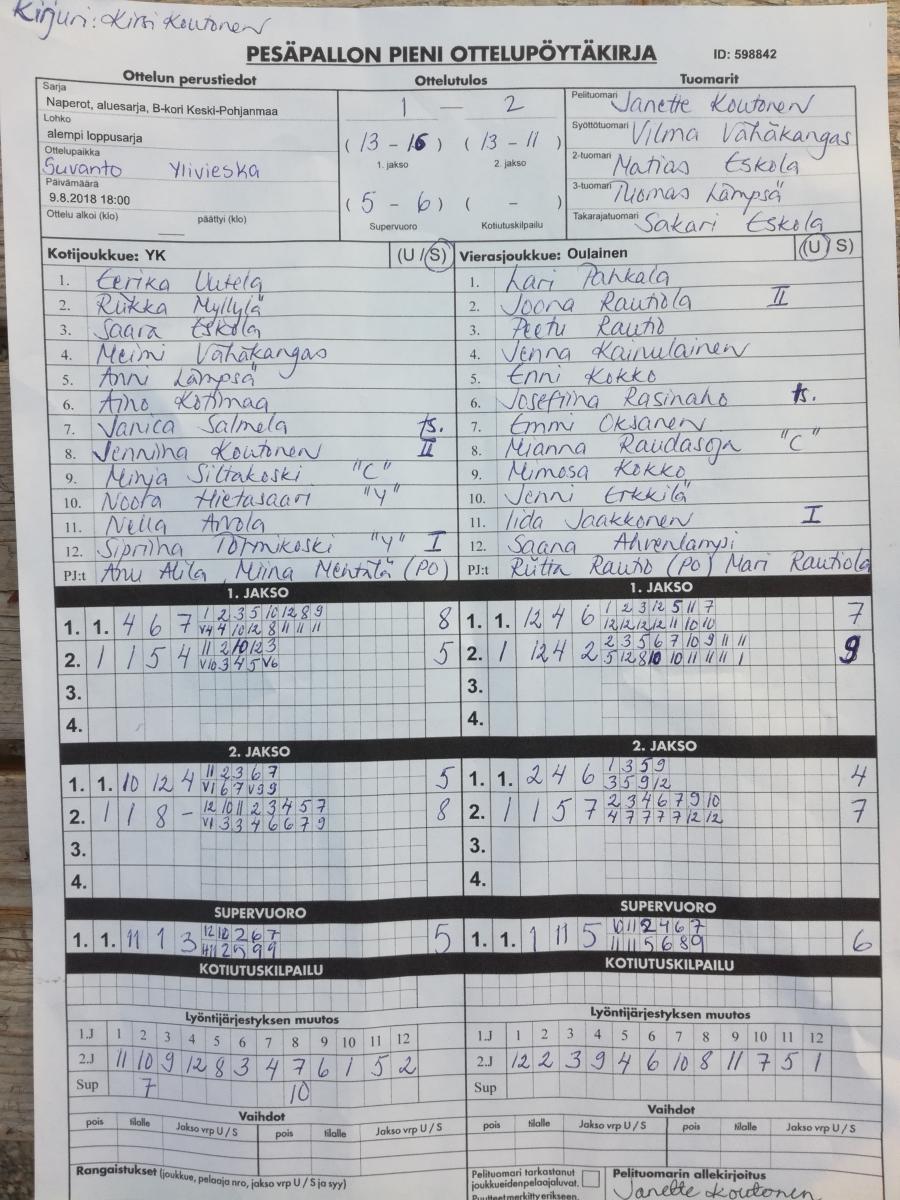 Kirjuri: Kirsi Koutonen
PESÄPALLON PIENI OTTELUPÖYTÄKIRJA ID: 598842
Ottelun perustiedot
Sarja
Naperot, aluesarja, B-kori Keski-Pohjanmaa
Lohko
alempi loppusarja
Ottelupaikka
Suvanto Ylivieska
Päivämäärä
9.8.2018 18:00
Ottelu alkoi (klo) päättyi (klo)
Ottelutulos
1 — 2
(13 - 16) (13 - 11)
1. jakso 2. jakso
(5 - 6) ( - )
Supervuoro Kotiutuskilpailu
Tuomarit
Pelituomari Janette Koutonen
Syöttötuomari Vilma Vähäkangas
2-tuomari Matias Eskola
3-tuomari Tuomas Lämpsä
Takarajatuomari Sakari Eskola
Kotijoukkue: YK (U / S)
1. Eerika Uutela
2. Riikka Myllylä
3. Saara Eskola
4. Meimi Vähäkangas
5. Anni Lämpsä
6. Aino Kotimaa
7. Janica Salmela ts.
8. Jenniina Koutonen II
9. Minja Siltakoski "C"
10. Noora Hietasaari "Y"
11. Nella Arvola
12. Sipriina Tormikoski "Y" I
PJ:t Anu Alila, Miina Mehtälä (PO)
Vierasjoukkue: Oulainen (U / S)
1. Lari Pahkala
2. Joona Rautiola II
3. Peetu Rautio
4. Jenna Kainulainen
5. Enni Kokko
6. Josefiina Rasinaho ts.
7. Emmi Oksanen
8. Mianna Raudasoja "C"
9. Mimosa Kokko
10. Jenni Erkkilä
11. Iida Jaakkonen I
12. Saana Ahvenlampi
PJ:t Riitta Rautio (PO) Mari Rautiola
1. JAKSO
1. 1. 4 6 7 1 2 3 5 10 12 8 9 8
V4 4 10 12 8 11 11 11
2. 1 1 5 4 11 2 10 12 3 5
V10 3 4 5 V6
3.
4.
1. JAKSO
1. 1. 12 4 6 1 2 3 12 5 11 7 7
12 12 12 12 11 10 10
2. 1 12 4 2 2 3 5 6 7 10 9 11 11 9
5 12 8 10 10 11 11 11 1
3.
4.
2. JAKSO
1. 1. 10 12 4 11 2 3 6 7 5
V1 6 7 V9 9
2. 1 1 8 - 12 10 11 2 3 4 5 7 8
V1 3 3 4 6 6 7 9
3.
4.
2. JAKSO
1. 1. 2 4 6 1 3 5 9 4
3 5 9 12
2. 1 1 5 7 2 3 4 6 7 9 10 7
4 7 7 7 7 12 12
3.
4.
SUPERVUORO
1. 1. 11 1 3 12 10 2 6 7 5
SUPERVUORO
1. 1. 1 11 5 10 11 2 4 6 7 6
11 11 5 6 8 9
KOTIUTUSKILPAILU
KOTIUTUSKILPAILU
Lyöntijärjestyksen muutos
1.J 1 2 3 4 5 6 7 8 9 10 11 12
2.J 11 10 9 12 8 3 4 7 6 1 5 2
Sup 7 10
Lyöntijärjestyksen muutos
1.J 1 2 3 4 5 6 7 8 9 10 11 12
2.J 12 2 3 9 4 6 10 8 11 7 5 1
Sup
Vaihdot
pois tilalle Jakso vrp U / S pois tilalle Jakso vrp U / S
Vaihdot
pois tilalle Jakso vrp U / S pois tilalle Jakso vrp U / S
Rangaistukset (joukkue, pelaaja nro, jakso vrp U / S ja syy)
Pelituomari tarkastanut
joukkueidenpelaajaluvat.
Puutteetmerkittyerikseen.
Pelituomarin allekirjoitus
Janette Koutonen